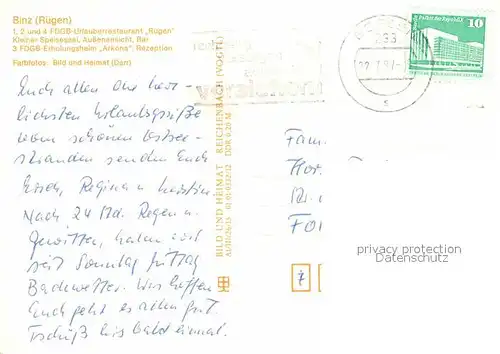 Binz (Rügen)
1, 2 und 4 FDGB-Urlauberrestaurant „Rügen"
Kleiner Speisesaal, Außenansicht, Bar
3 FDGB-Erholungsheim „Arkona", Rezeption
Farbfotos: Bild und Heimat (Darr)
Euch allen die herz-
lichsten Urlaubsgrüße
vom schönen Ostsee-
strand senden Euch
Erich, Regina u. Kerstin.
Nach 24 Std. Regen u.
Gewitter, haben wir
seit Sonntag Mittag
Badewetter. Wir hoffen
Euch geht es allen gut.
Tschüß bis bald einmal.
BILD UND HEIMAT REICHENBACH (VOGTL)
A1/1026/15 01 01 0332/12 DDR 0,20 M
10
Fam.
Hor.
Str.
privacy protection
Datenschutz